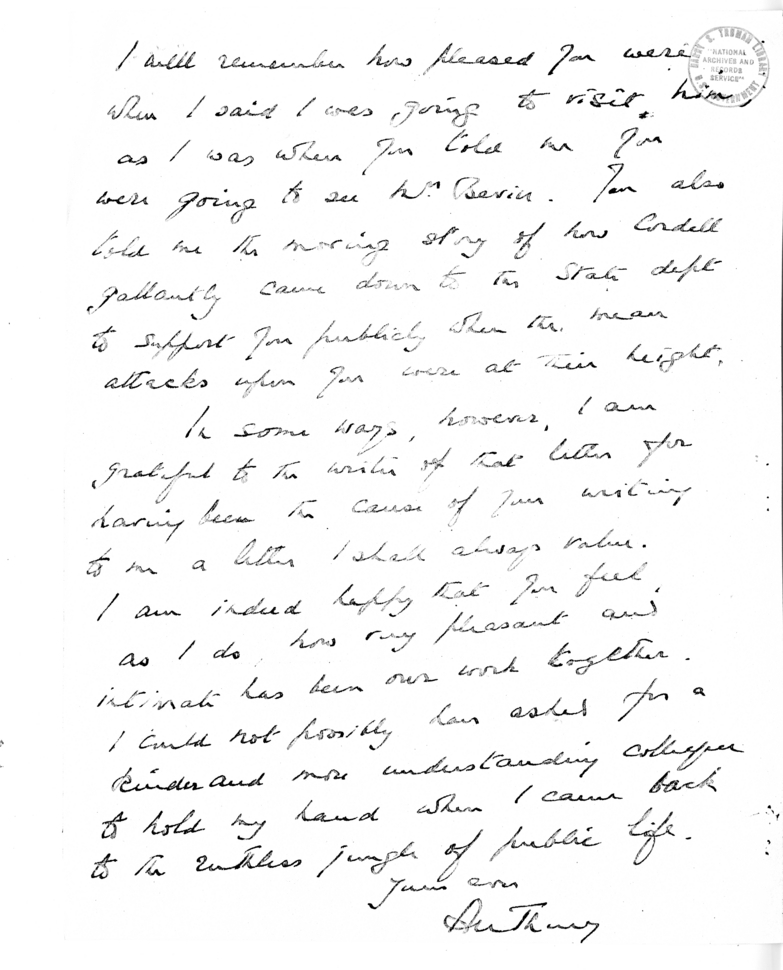 I well remember how pleased you were
when I said I was going to visit him,
as I was when you told me you
were going to see Mr. Bevin. You also
told me the moving story of how Cordell
gallantly came down to the State dept
to support you publicly when the mean
attacks upon you were at their height.
In some ways, however, I am
grateful to the writer of that letter for
having been the cause of your writing
to me a letter I shall always value.
I am indeed happy that you feel,
as I do, how very pleasant and
intimate has been our work together.
I could not possibly have asked for a
kinder and more understanding colleague
to hold my hand when I came back
to the ruthless jungle of public life.
Yours ever
Anthony
HARRY S. TRUMAN LIBRARY
"NATIONAL
ARCHIVES AND
RECORDS
SERVICE"
U.S. GOVERNMENT